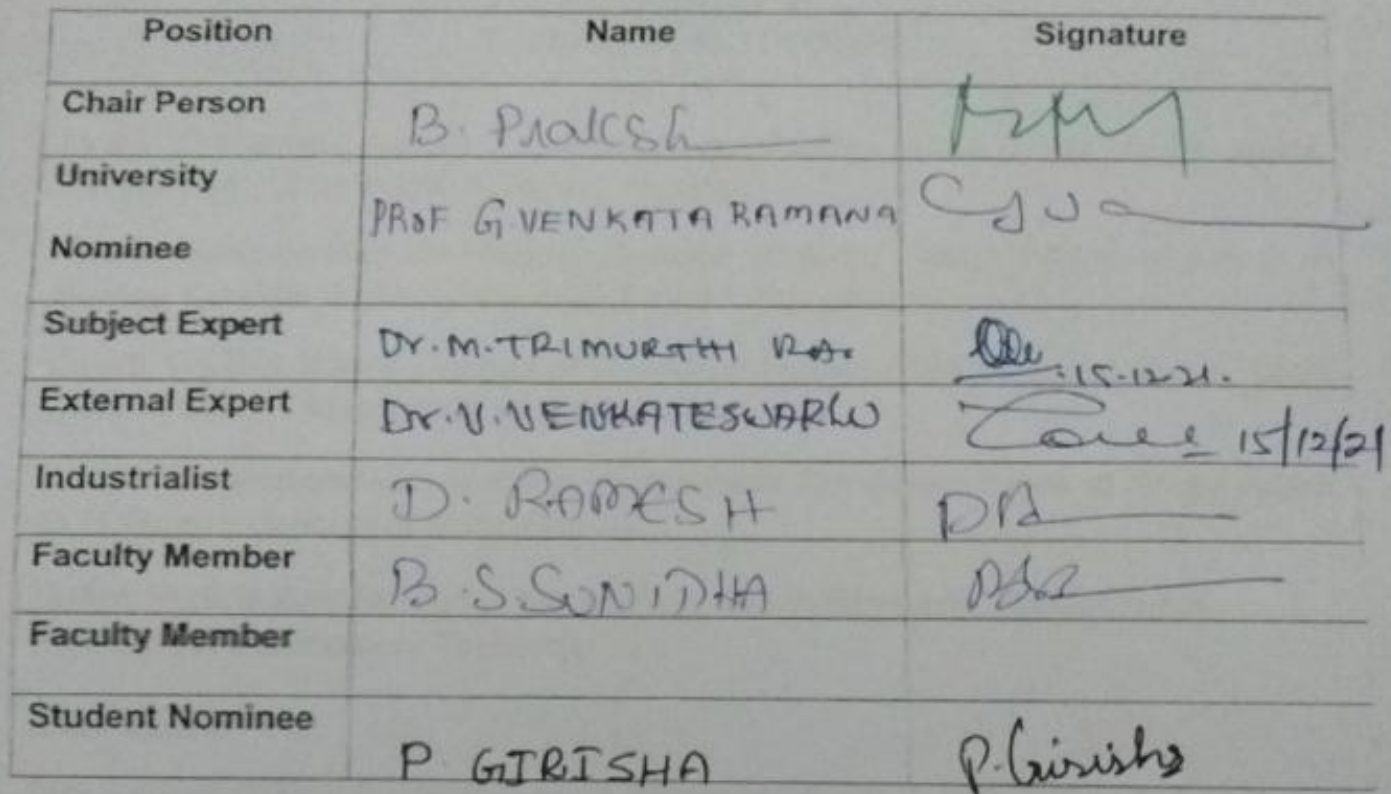 Position Name Signature
Chair Person B. Prakash
University
PROF G VENKATA RAMANA
Nominee
Subject Expert Dr. M. TRIMURTHI 15-12-21.
External Expert Dr. V. VENKATESWARLU 15/12/21
Industrialist D. RAMESH
Faculty Member B. S. SUNIDHA
Faculty Member
Student Nominee P GIRISHA P. Girisha